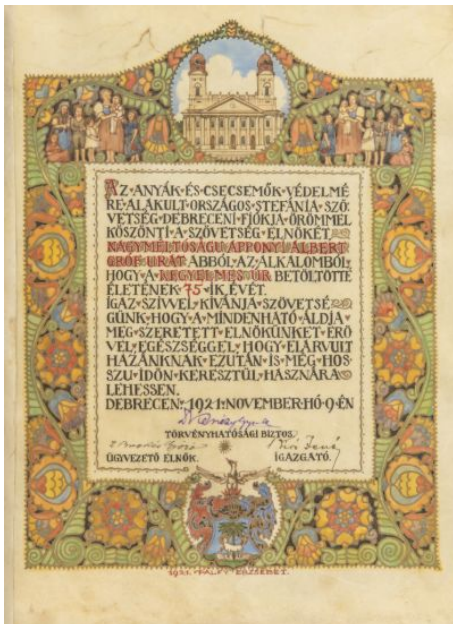 AZ·ANYÁK·ÉS·CSECSEMŐK·VÉDELMÉ
RE·ALAKULT·ORSZÁGOS·STEFÁNIA·SZÖ
VETSÉG·DEBRECENI·FIÓKJA·ÖRÖMMEL
KÖSZÖNTI·A·SZÖVETSÉG·ELNÖKÉT,
NAGYMÉLTÓSÁGU·APPONYI·ALBERT
GRÓF·URAT·ABBÓL·AZ·ALKALOMBÓL,
HOGY·A·KEGYELMES·ÚR·BETÖLTÖTTE
ÉLETÉNEK·75·IK·ÉVÉT.
IGAZ·SZÍVVEL·KÍVÁNJA·SZÖVETSÉ
GÜNK·HOGY·A·MINDENHATÓ·ÁLDJA
MEG·SZERETETT·ELNÖKÜNKET·ERŐ
VEL·EGÉSZSÉGGEL, HOGY·ELÁRVULT
HAZÁNKNAK·EZUTÁN·IS·MÉG·HOS
SZU·IDŐN·KERESZTÜL·HASZNÁRA
LEHESSEN.
DEBRECEN·1921·NOVEMBER·HÓ·9·ÉN
TÖRVÉNYHATÓSÁGI BIZTOS.
ÜGYVEZETŐ ELNÖK. IGAZGATÓ.
1921. PÁLFY ERZSÉBET.